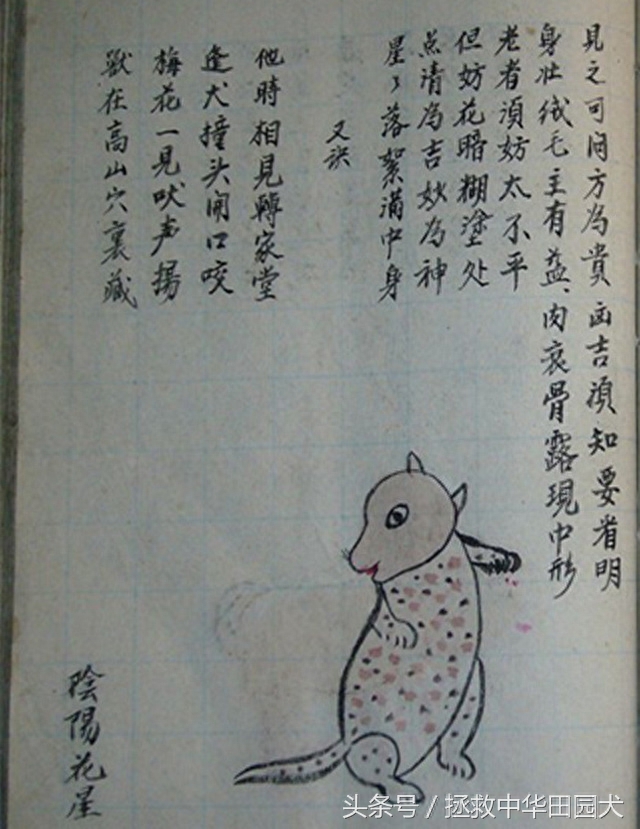 見之可问方為貴 凶吉須知要省明
身壮绒毛主有益、肉衰骨露現中形
老者須妨太不平
但妨花暗糊塗处
点清為吉妙為神
星々落絮满中身
又诀
他時相見轉家堂
逢犬撞头闹口咬
梅花一見吠声揚
獸在高山穴裏藏
陰陽花星
头条号／拯救中华田园犬